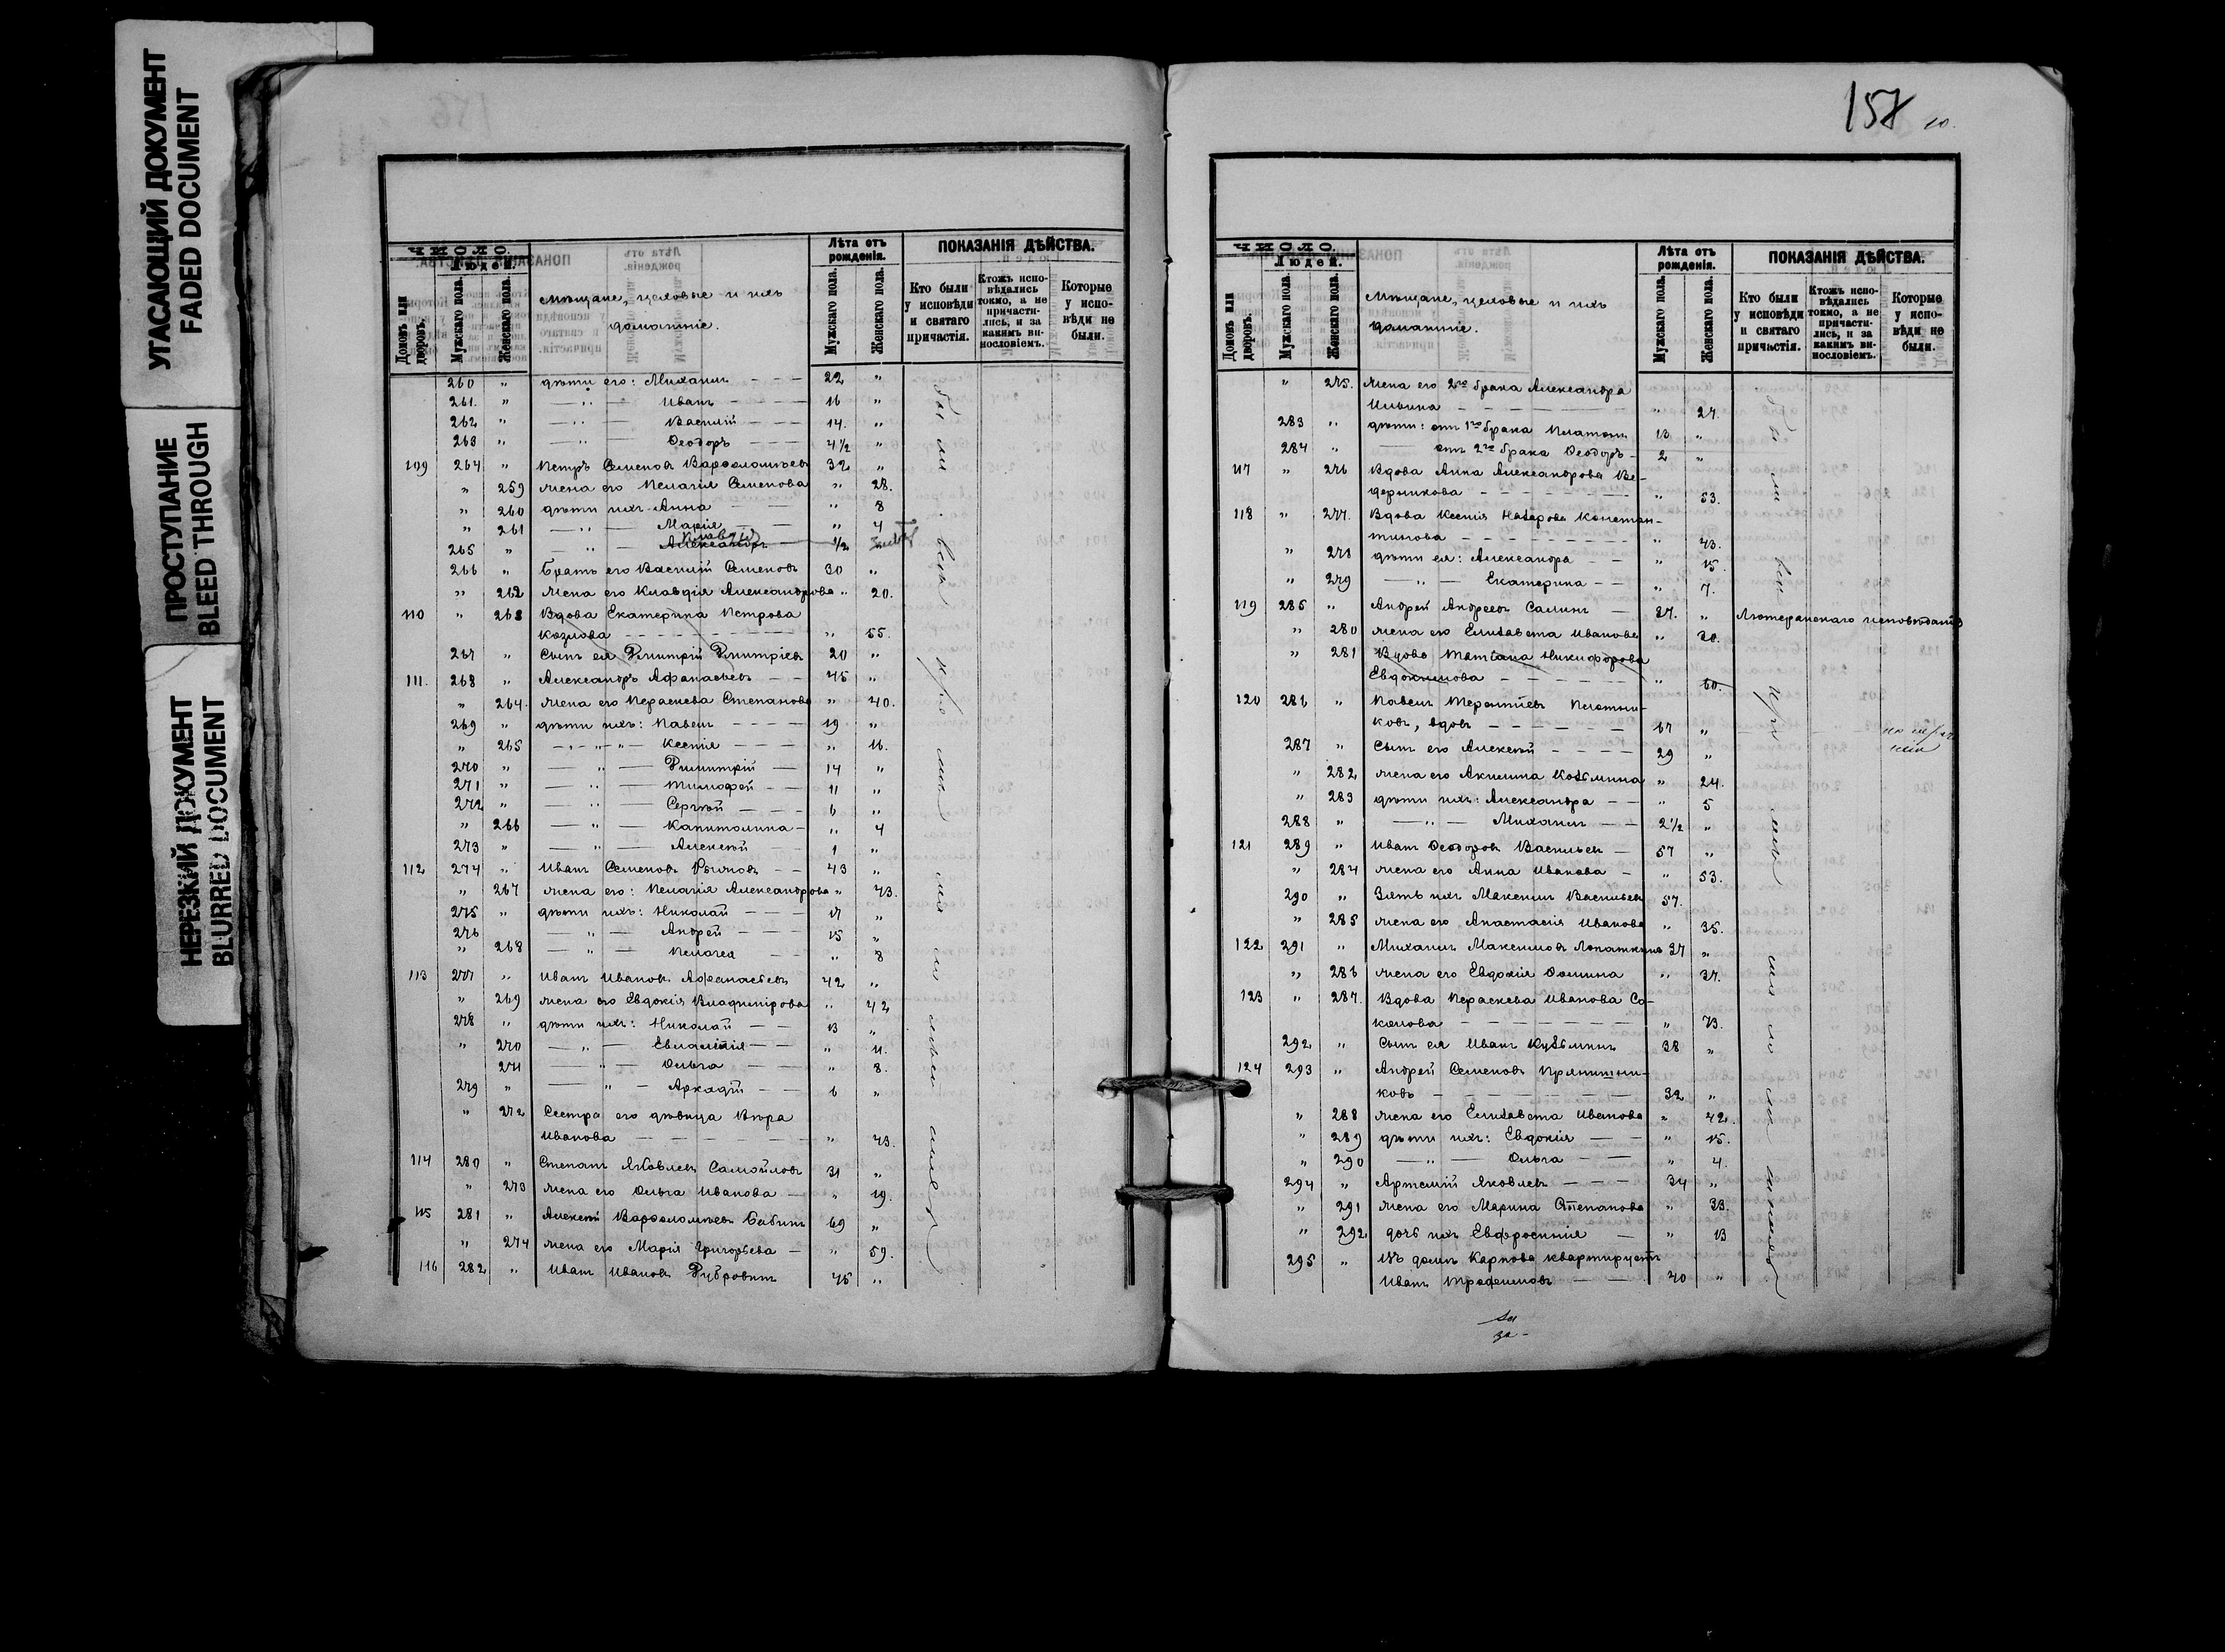 УГАСАЮЩИЙ ДОКУМЕНТ
FADED DOCUMENT
ПРОСТУПАНИЕ
BLEED THROUGH
НЕРЕЗКИЙ ДОКУМЕНТ
BLURRED DOCUMENT
ЧИСЛО.
Людей.
Домовъ или дворовъ.
Мужскаго пола.
Женскаго пола.
Мѣщане, цеховые и ихъ
домашніе.
Лѣта отъ
рожденія.
Мужскаго пола.
Женскаго пола.
ПОКАЗАНІЯ ДѢЙСТВА.
Кто были
у исповѣди
и святаго
причастія.
Ктожъ испо-
вѣдались
токмо, а не
причасти-
лись, и за
какимъ ви-
нословіемъ.
Которые
у испо-
вѣди не
были.
260 " дѣти его: Михаилъ - - - 22 "
261. " — " — Иванъ - - - 16 "
262 " — " — Василій - - - 14. "
263 " — " — Ѳеодоръ - - - 4½ "
109 264 " Петръ Семеновъ Варѳоломѣевъ 32 "
" 259 жена его Пелагія Семенова " 28.
" 260 дѣти ихъ Анна - - " 8
" 261 — " — Марія - - " 4
Клавдія
265 " — " — Александръ ½ "
266 " Братъ его Василій Семеновъ 30 "
" 262 Жена его Клавдія Александрова " 20.
110 " 263 Вдова Екатерина Петрова
Козлова - - - - " 55.
267 " Сынъ ея Димитрій Димитріевъ 20 "
111. 268 " Александръ Аѳанасьевъ - - 45 "
" 264. жена его Параскева Степанова " 40.
269 " дѣти ихъ: Павелъ - - - - 19 "
" 265 — " — Ксенія - - - " 16.
270 " — " — Димитрій — 14 "
271 " — " — Тимофей - - 11 "
272 " — " — Сергѣй - - 6 "
" 266 — " — Капитолина - " 4
273 " — " — Алексѣй - - 1 "
112 274 " Иванъ Семеновъ - - 43 "
" 267 жена его: Пелагія Александрова " 43.
275 " дѣти ихъ: Николай - - - 17 "
276 — " — Андрей - - - 15 "
" 268 — " — Пелагея - - " 8
113 277 " Иванъ Ивановъ Аѳанасьевъ 42 "
" 269 жена его Евдокія Владимірова " 42
278 " дѣти ихъ: Николай - - 13 "
" 270 — " — Евлампія - - " 11.
271 — " — Ольга - - " 8.
279 " — " — Аркадій - - 6 "
" 272 Сестра его дѣвица Вѣра
Иванова - - - - " 43.
114 280 " Степанъ Яковлевъ Самойловъ 31 "
" 273 жена его Ольга Иванова — " 19.
115 281 " Алексѣй Варѳоломѣевъ Бабинъ 69 "
" 274 жена его Марія Григорьева — " 59.
116 282 " Иванъ Ивановъ Дубровинъ 45 "
были всѣ
158
ЧИСЛО.
Людей.
Домовъ или дворовъ.
Мужскаго пола.
Женскаго пола.
Мѣщане, цеховые и ихъ
домашніе.
Лѣта отъ
рожденія.
Мужскаго пола.
Женскаго пола.
ПОКАЗАНІЯ ДѢЙСТВА.
Кто были
у исповѣди
и святаго
причастія.
Ктожъ испо-
вѣдались
токмо, а не
причасти-
лись, и за
какимъ ви-
нословіемъ.
Которые
у испо-
вѣди не
были.
" 275. жена его 2го брака Александра
Ильина - - - - " 27.
283 " дѣти: отъ 1го брака Платонъ 13 "
284 " отъ 2го брака Ѳеодоръ - 2 "
117 " 276 Вдова Анна Александрова Ве-
дерникова - - - - " 53.
118 " 277. Вдова Ксенія Назарова Констан-
тинова - - - - " 43.
" 278 дѣти ея: Александра - - " 15
" 279 — " — Екатерина - - " 7.
119 285 " Андрей Андреевъ Салинъ — 37. " Лютеранскаго исповѣданія
" 280 жена его Елизавета Иванова " 30.
" 281 Вдова Татіана Никифорова
Евдокимова - - - - " 60.
120 286 " Павелъ Терентіевъ Плотни-
ковъ, вдовъ - - - - 67 "
287 " Сынъ его Алексѣй - - - - 29 "
" 282 жена его Акилина Козьмина " 24.
" 283 дѣти ихъ: Александра - - " 5
288 " — " — Михаилъ - - 2½ "
121 289 " Иванъ Ѳеодоровъ Васильевъ — 57 "
" 284 жена его Анна Иванова — " 53.
290 " Зять ихъ Максимъ Васильевъ 57.
" 285 жена его Анастасія Иванова " 35.
122 291 " Михаилъ Максимовъ Лопаткинъ 37 "
" 286 жена его Евдокія Ѳомина " 37.
123 " 287. Вдова Параскева Иванова Со-
колова - - - - " 73.
292 " Сынъ ея Иванъ Кузьминъ 38 "
124 293 " Андрей Семеновъ Прянишни-
ковъ - - - - 32 "
" 288 жена его Елизавета Иванова " 42.
" 289 дѣти ихъ: Евдокія — " 15.
" 290 — " — Ольга — " 4.
294 " Артемій Яковлевъ - - - 34 "
" 291 жена его Марина Степанова " 33.
" 292 дочь ихъ Евфросинія — " 13
295 " Въ домѣ Карпова квартируетъ
Иванъ Трофимовъ — 40 "
бы ли всѣ
за